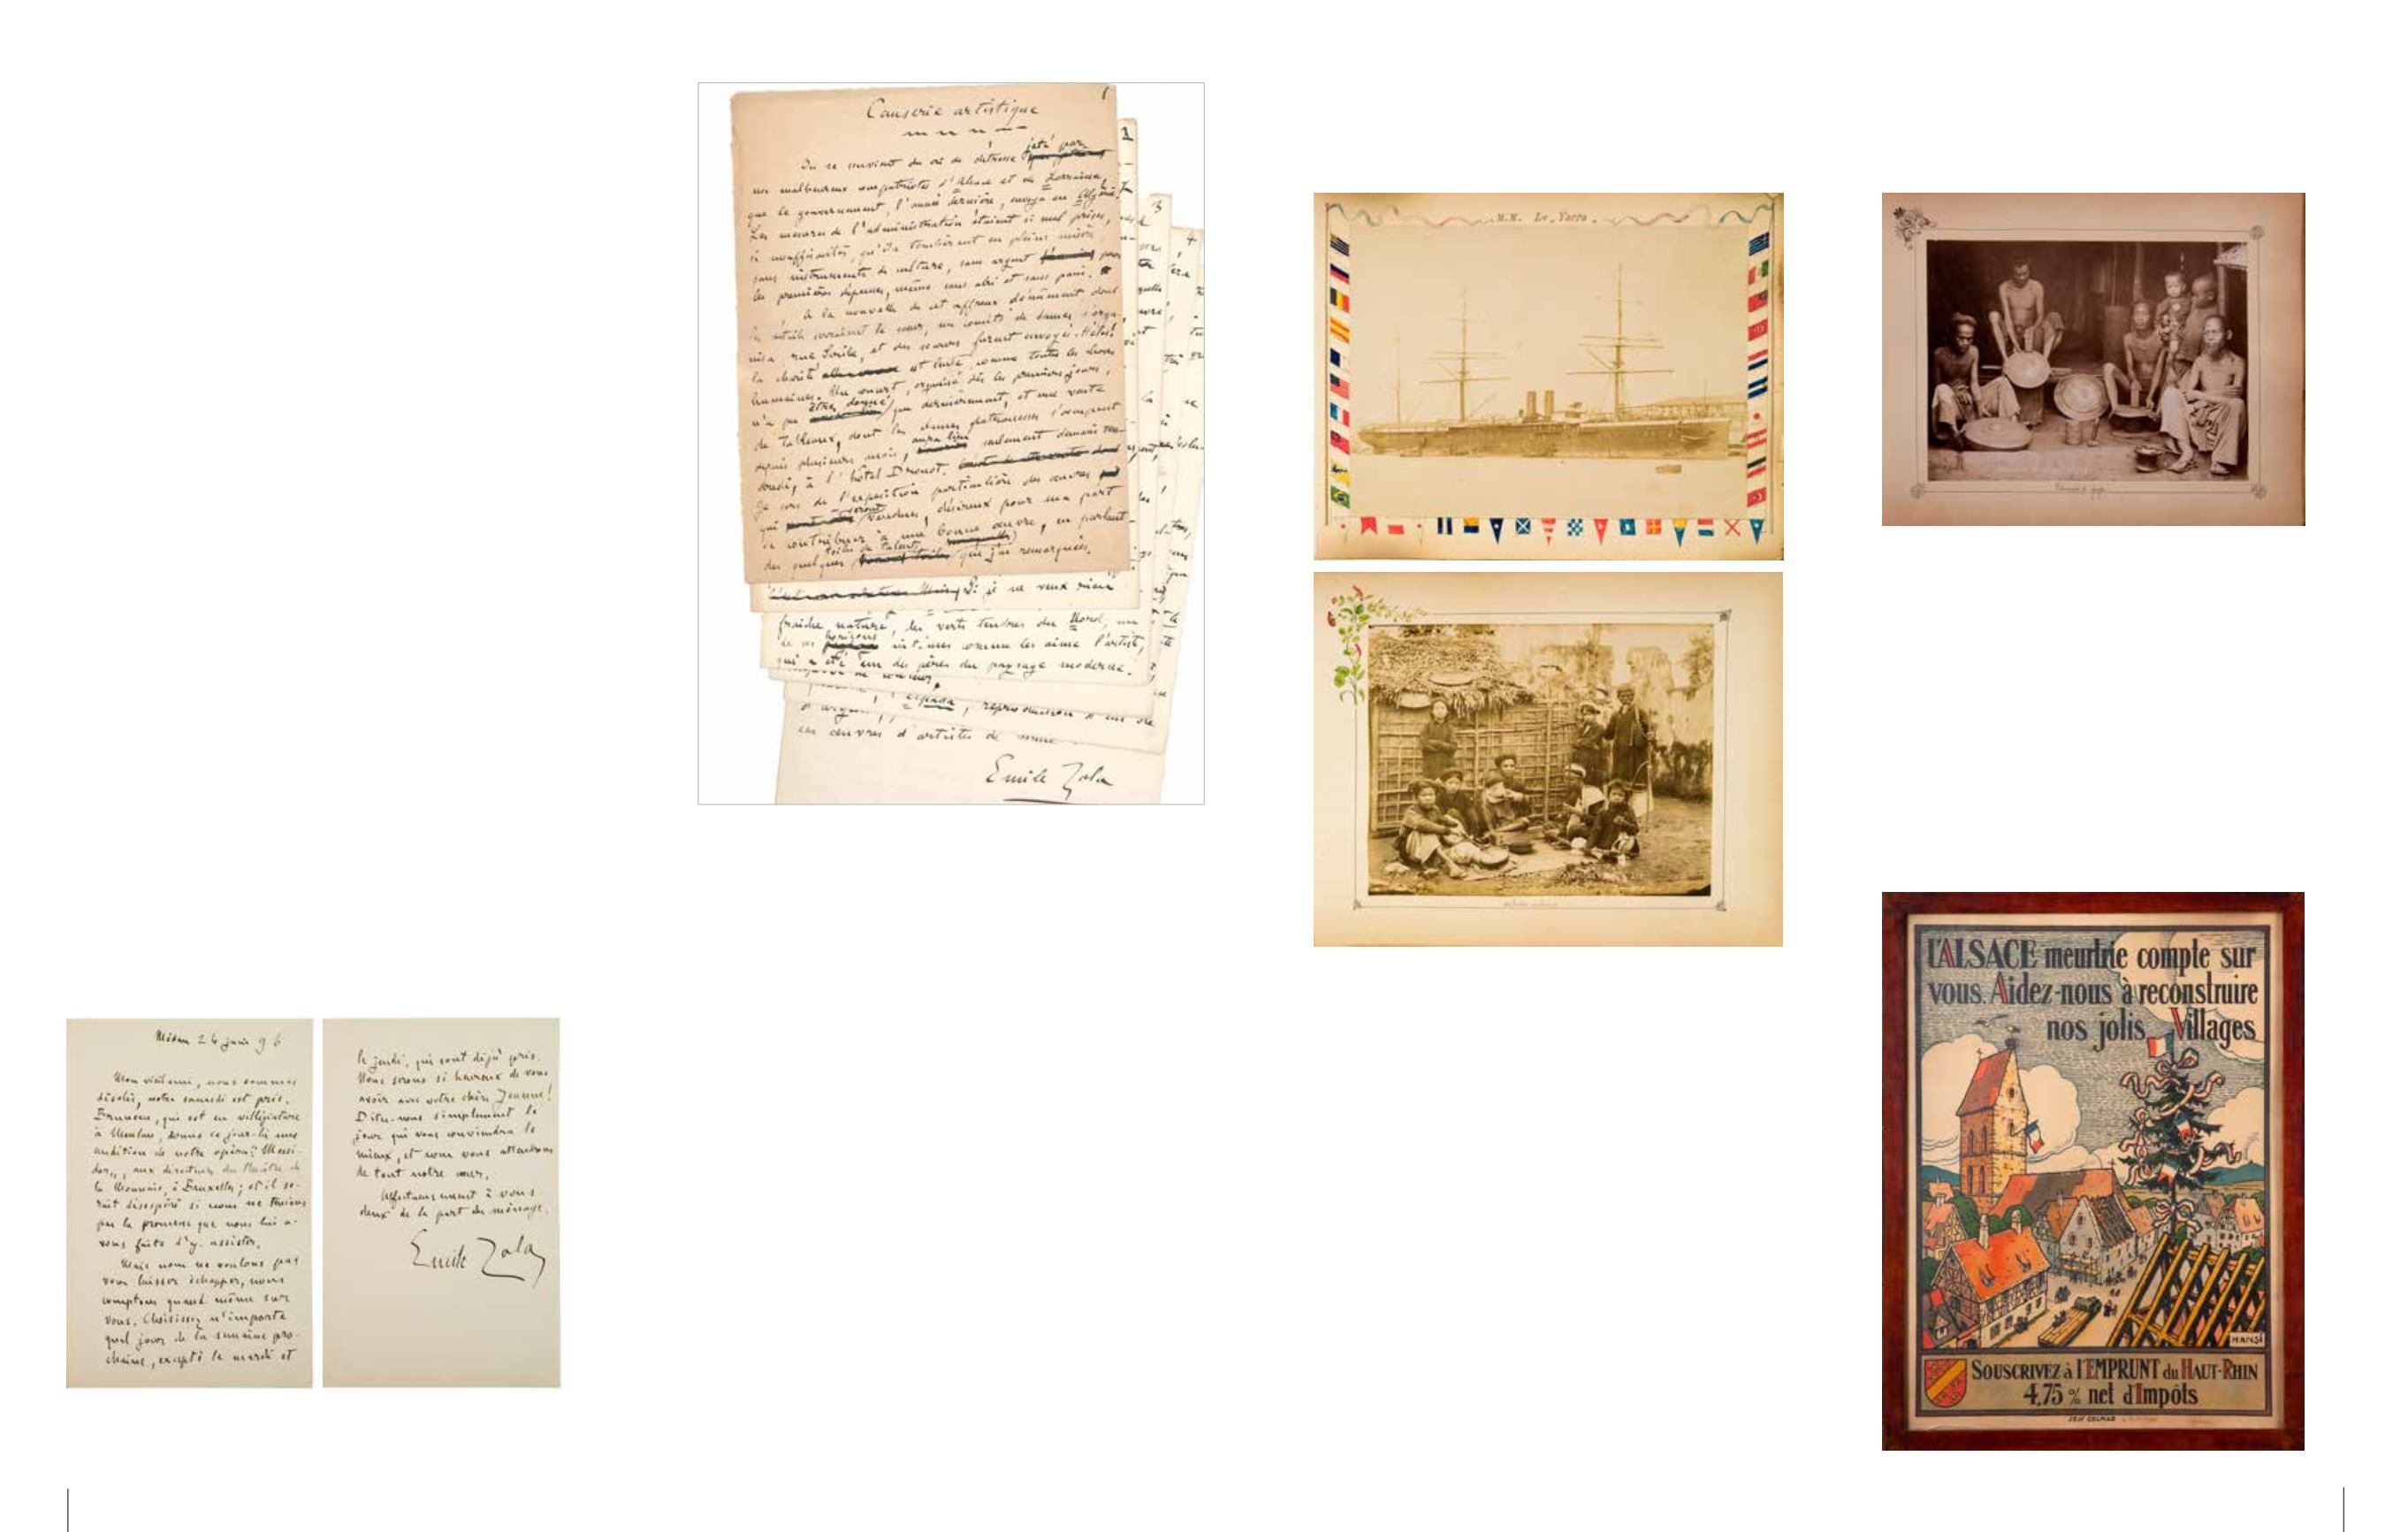 Causerie artistique
1
On se souvient du cri de détresse jeté par
nos malheureux compatriotes d'Alsace et de Lorraine,
que le gouvernement, l'année dernière, envoya en Algérie.
Les mesures de l'administration étaient si mal prises,
si insuffisantes, qu'ils tombèrent en pleine misère
sans instruments de culture, sans argent pour
les premières dépenses, même sans abri et sans pain.
A la nouvelle de cet affreux dénûment dont
les détails serraient le cœur, un comité de dames s'orga-
nisa rue Scribe, et des secours furent envoyés. Hélas!
la charité est lente, comme toutes les choses
humaines. Un concert, organisé dès les premiers jours,
n'a pu être donné que dernièrement, et une vente
de tableaux, dont les dames patronnesses s'occupent
depuis plusieurs mois, aura lieu seulement demain ven-
dredi, à l'hôtel Drouot.
Je sors de l'exposition particulière des œuvres
qui seront vendues, désireux pour ma part
de contribuer à une bonne œuvre, en parlant
des quelques toiles de talent que j'ai remarquées.
1
3
4
si je ne veux rien
fraîche nature, les verts tendres du Nord, un
de ces horizons intimes comme les aime l'artiste,
qui a été un des pères du paysage moderne.
en œuvres d'artistes de
Emile Zola
M.M. Le Yarra.
Médan 24 juin 96
Mon vieil ami, nous sommes
désolés, notre samedi est pris.
Bruneau, qui est en villégiature
à Meulan, donne ce jour-là une
audition de notre opéra, "Messi-
dor", aux directeurs du théâtre de
la Monnaie, à Bruxelles; et il se-
rait désespéré si nous ne tenions
pas la promesse que nous lui a-
vons faite d'y assister.
Mais nous ne voulons pas
vous laisser échapper, nous
comptons quand même sur
vous. Choisissez n'importe
quel jour de la semaine pro-
chaine, excepté le mardi et
le jeudi, qui sont déjà pris.
Nous serons si heureux de vous
avoir avec votre chère Jeanne!
Dites-nous simplement le
jour qui vous conviendra le
mieux, et nous vous attendrons
de tout notre cœur.
Affectueusement à vous
deux de la part du ménage.
Emile Zola
L'ALSACE meurtrie compte sur
vous. Aidez-nous à reconstruire
nos jolis Villages
HANSI
SOUSCRIVEZ à l'EMPRUNT du HAUT-RHIN
4,75 % net d'Impôts